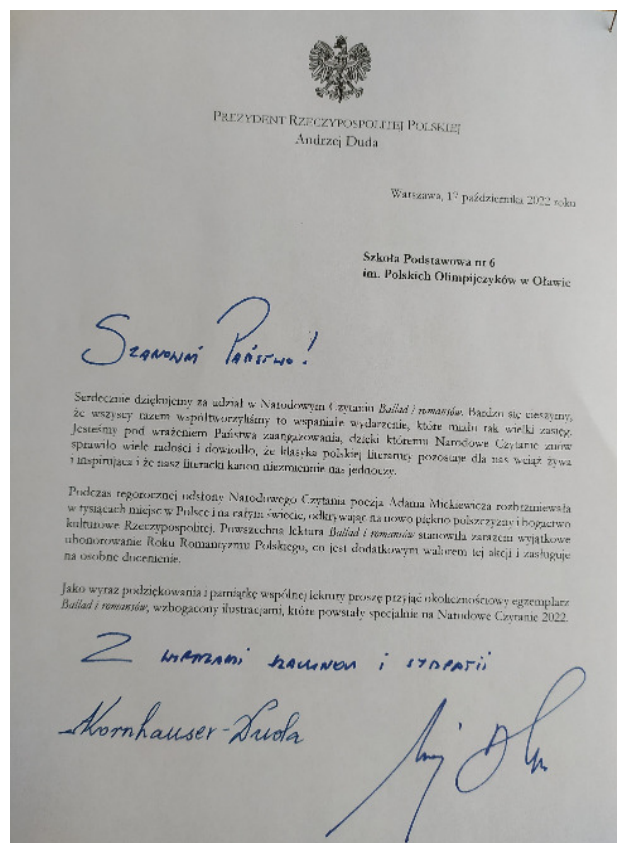 PREZYDENT RZECZYPOSPOLITEJ POLSKIEJ
Andrzej Duda
Warszawa, 17 października 2022 roku
Szkoła Podstawowa nr 6
im. Polskich Olimpijczyków w Oławie
Szanowni Państwo!
Serdecznie dziękujemy za udział w Narodowym Czytaniu Ballad i romansów. Bardzo się cieszymy,
że wszyscy razem współtworzyliśmy to wspaniałe wydarzenie, które miało tak wielki zasięg.
Jesteśmy pod wrażeniem Państwa zaangażowania, dzięki któremu Narodowe Czytanie znów
sprawiło wiele radości i dowiodło, że klasyka polskiej literatury pozostaje dla nas wciąż żywa
i inspirująca i że nasz literacki kanon niezmiennie nas jednoczy.
Podczas tegorocznej odsłony Narodowego Czytania poezja Adama Mickiewicza rozbrzmiewała
w tysiącach miejsc w Polsce i na całym świecie, odkrywając na nowo piękno polszczyzny i bogactwo
kulturowe Rzeczypospolitej. Powszechna lektura Ballad i romansów stanowiła zarazem wyjątkowe
uhonorowanie Roku Romantyzmu Polskiego, co jest dodatkowym walorem tej akcji i zasługuje
na osobne docenienie.
Jako wyraz podziękowania i pamiątkę wspólnej lektury proszę przyjąć okolicznościowy egzemplarz
Ballad i romansów, wzbogacony ilustracjami, które powstały specjalnie na Narodowe Czytanie 2022.
Z wyrazami szacunku i sympatii
AKornhauser-Duda